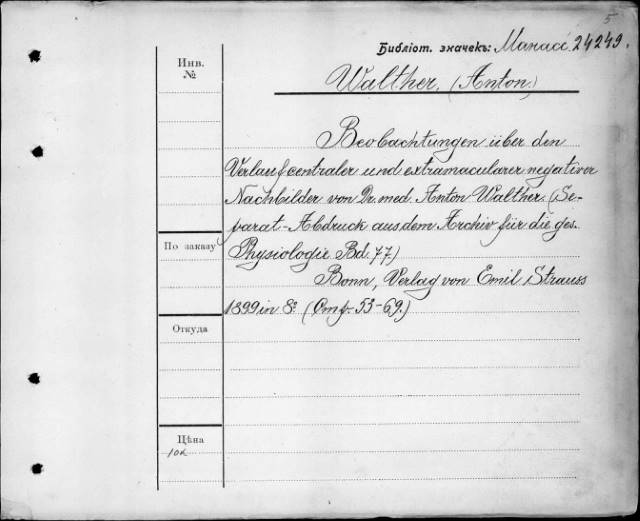 5
Библіот. значекъ: Манасс. 24249.
Инв.
№
Walther. (Anton)
Beobachtungen über den
Verlauf centraler und extramacularer negativer
Nachbilder von Dr. med. Anton Walther. (Se-
parat-Abdruck aus dem Archiv für die ges.
По заказу
Physiologie Bd. 77)
Bonn, Verlag von Emil Strauss
1899 in 8º (Стр. 53-69.)
Откуда
Цѣна